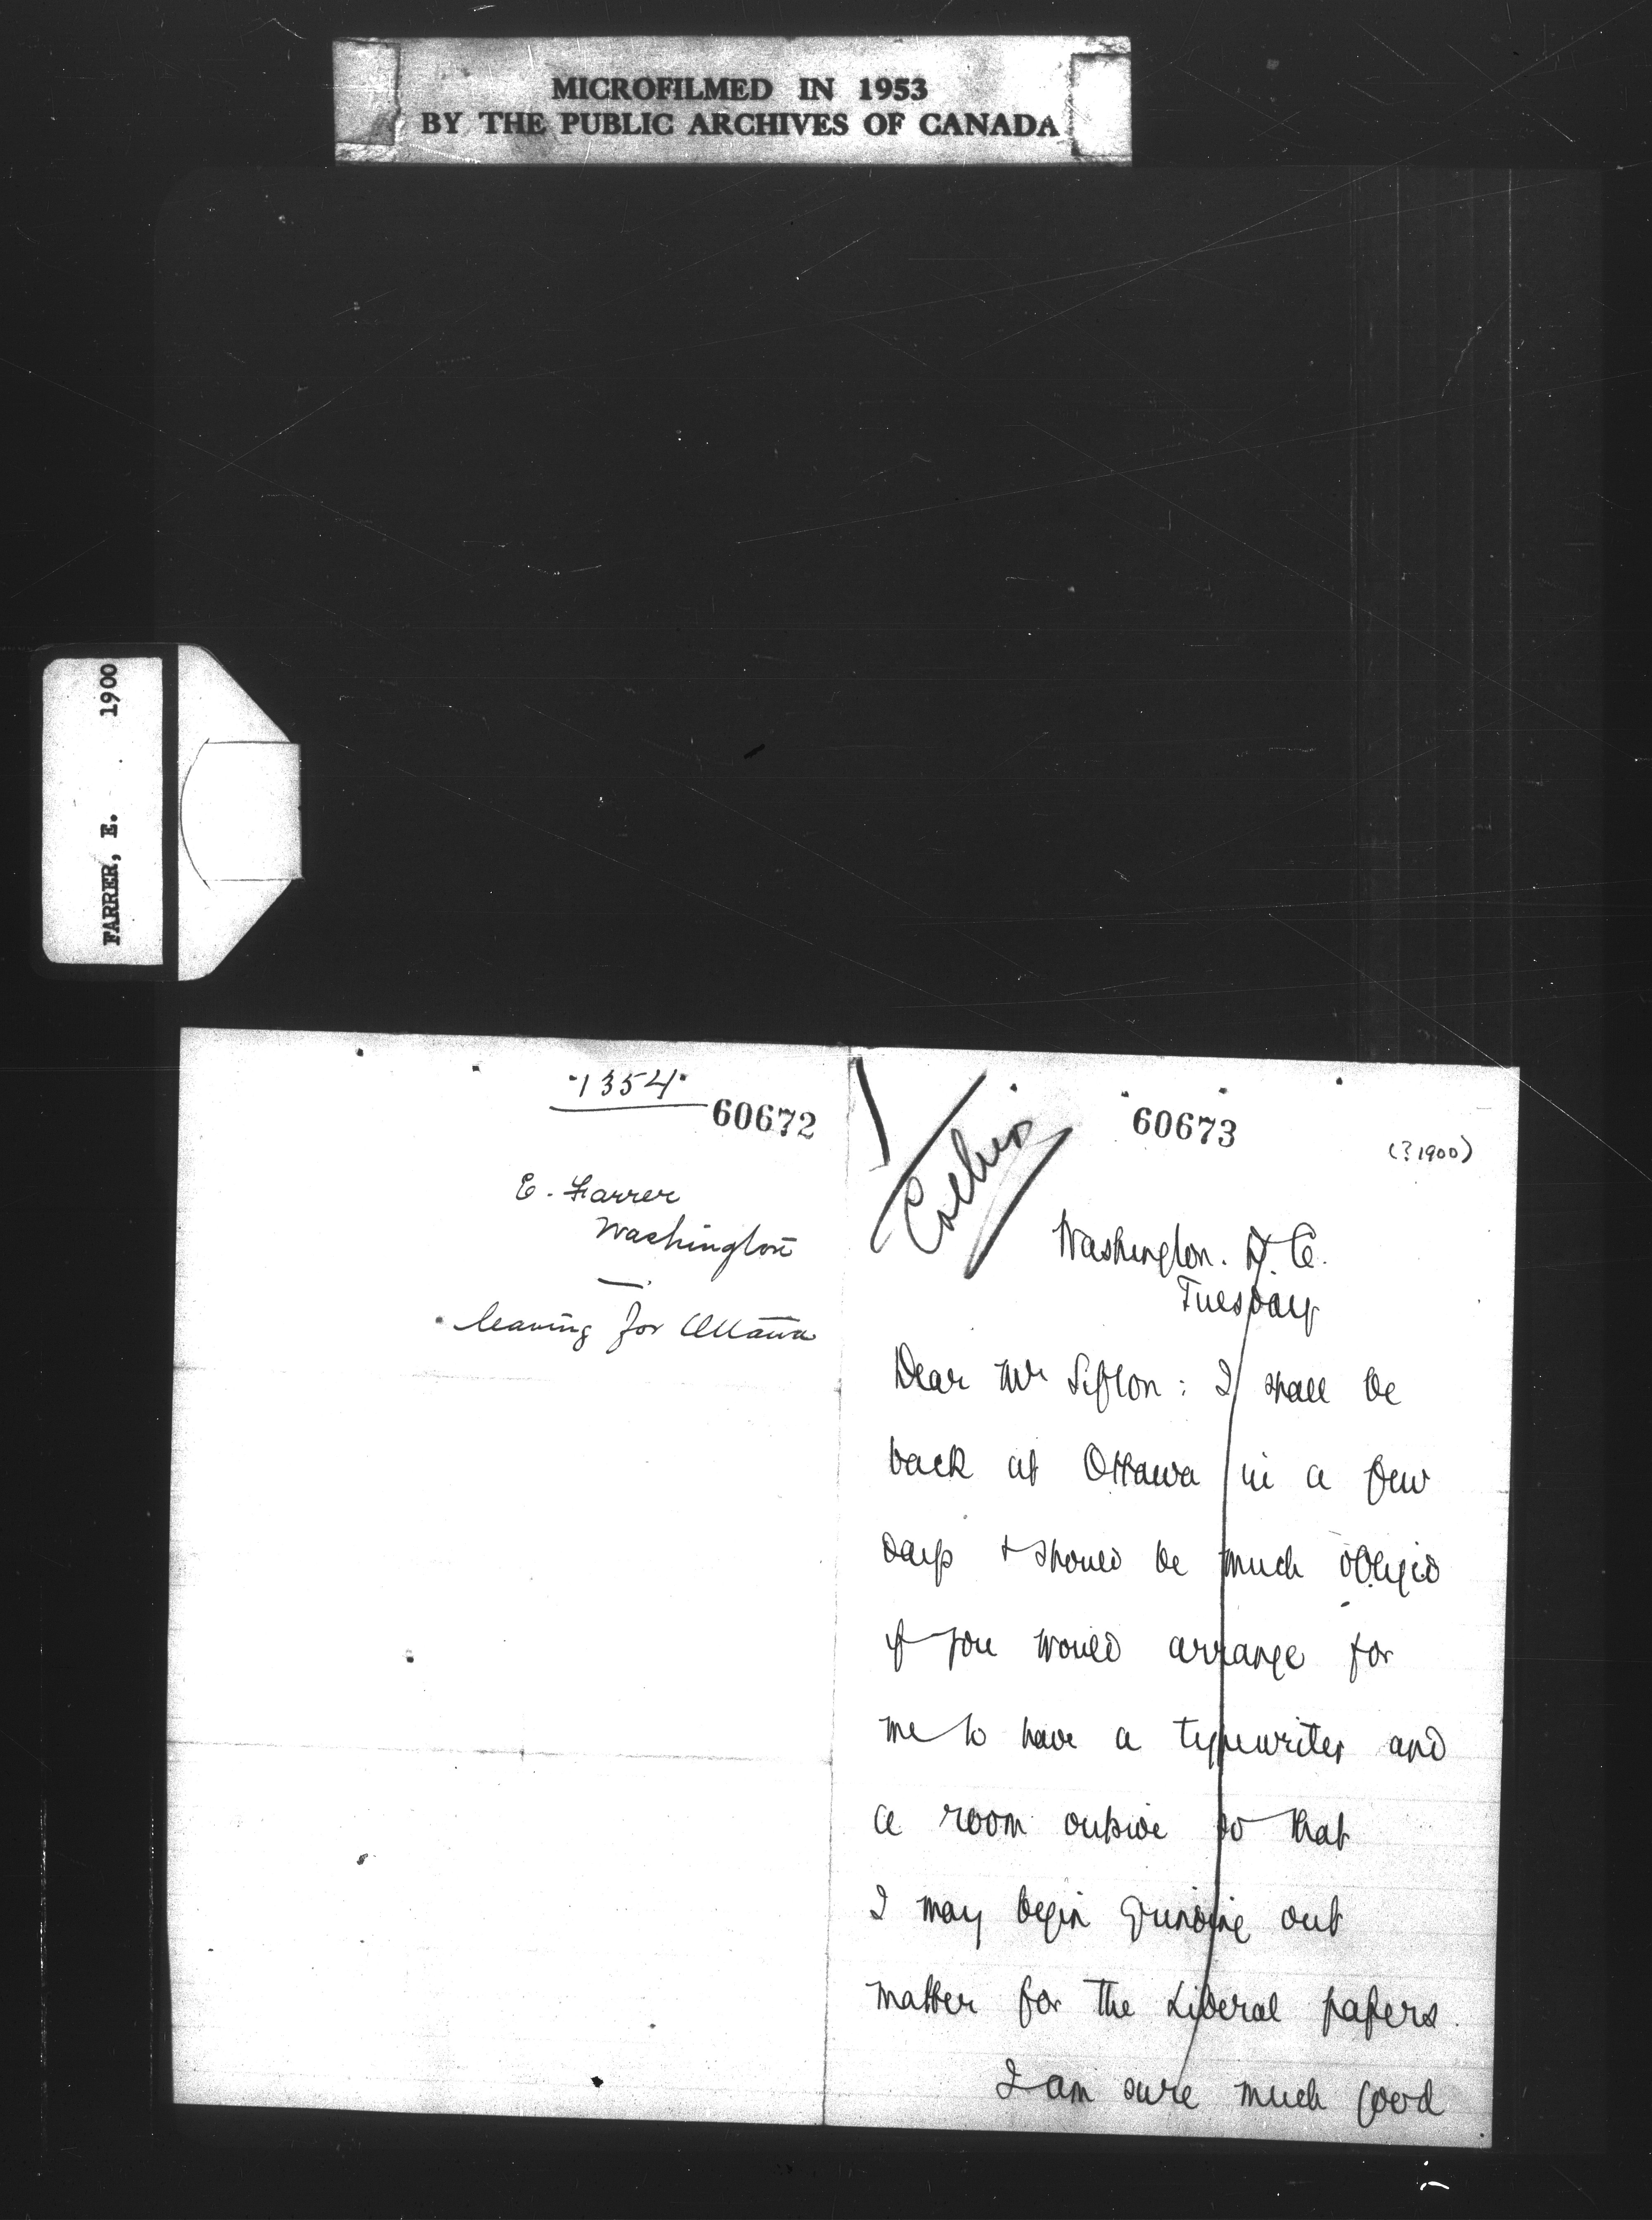 MICROFILMED IN 1953
BY THE PUBLIC ARCHIVES OF CANADA
FARRER, E. 1900
1354
60672
E. Farrer
Washington
leaving for Ottawa
60673
(? 1900)
Washington. D. C.
Tuesday
Dear Mr Sifton: I shall be
back at Ottawa in a few
days & should be much obliged
if you would arrange for
me to have a typewriter and
a room outside so that
I may begin grinding out
matter for the Liberal papers.
I am sure much good